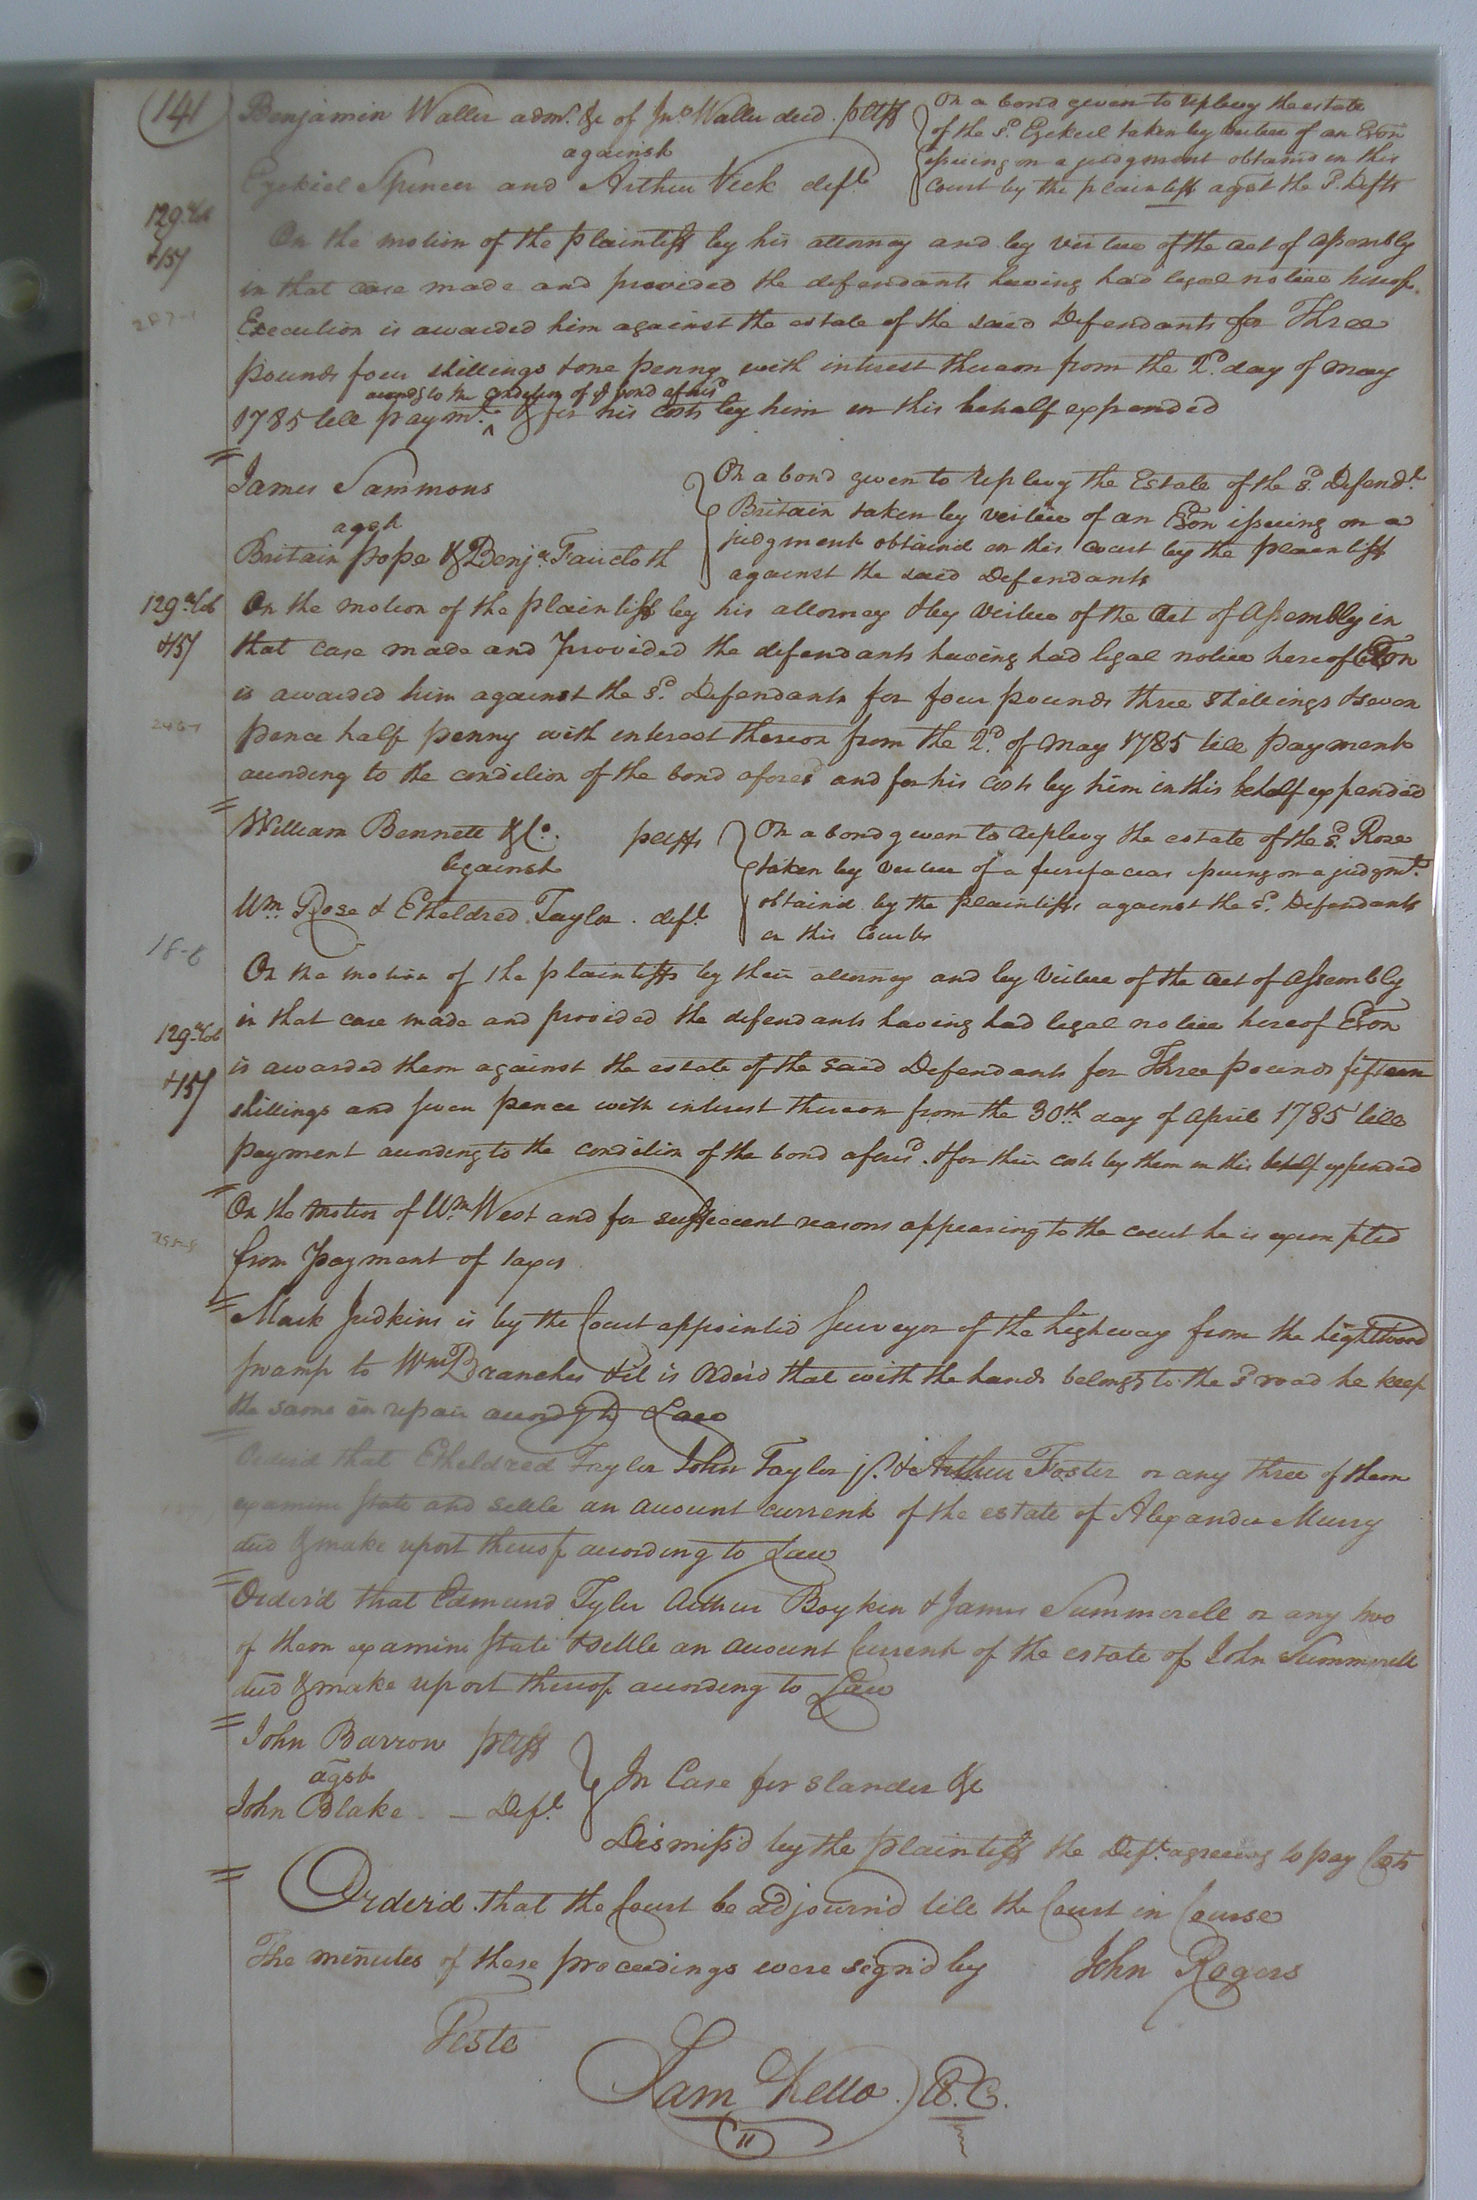 141
Benjamin Waller admr. &c of Jno. Waller decd. pltff
against
Ezekiel Spencer and Arthur Vick deft.
On a bond given to replevy the estate
of the sd. Ezekiel taken by virtue of an Exon
issuing on a judgment obtained in this
Court by the plaintiff agst the sd. Defts
On the motion of the plaintiff by his attorney and by virtue of the act of assembly
in that case made and provided the defendants having had legal notice hereof.
Execution is awarded him against the estate of the said Defendants for Three
pounds four shillings & one penny with interest thereon from the 2d. day of may
accordg to the condition of ye bond aforesd
1785 till paymt. ^ & for his costs by him in this behalf expended
James Sammons
agst
Britain Pope & Benja. Faircloth
On a bond given to replevy the Estate of the sd. Defendt.
Britain taken by virtue of an Exon issuing on a
judgment obtained in this Court by the plaintiff
against the said Defendants
129. Tob
& 15/
On the motion of the plaintiff by his attorney & by Virtue of the act of Assembly in
that case made and provided the defendants having had legal notice hereof Exon
is awarded him against the sd. Defendants for four pounds three shillings & seven
pence half penny with interest thereon from the 2d. of may 1785 till payment
according to the condition of the bond aforesd and for his costs by him in this behalf expended
William Bennett & Co. pltffs
against
Wm. Rose & Etheldred Taylor. deft.
On a bond given to replevy the estate of the sd. Rose
taken by virtue of a fierifacias issuing on a judgmt.
obtained by the plaintiffs against the sd. Defendants
in this Court
18-6
On the motion of the plaintiffs by their attorney and by virtue of the act of Assembly
in that case made and provided the defendants having had legal notice hereof Exon
is awarded them against the estate of the said Defendants for Three pounds fifteen
shillings and seven pence with interest thereon from the 30th. day of April 1785 till
payment according to the condition of the bond aforesd. & for their costs by them in this behalf expended
129. Tob
& 15/
On the motion of Wm. West and for sufficient reasons appearing to the court he is exempted
from payment of taxes
Mark Judkins is by the Court appointed Surveyor of the highway from the lightwood
swamp to Wm Branches & it is orderd that with the hands belongg to the sd road he keep
the same in repair accordg to Law
Orderd that Etheldred Taylor John Taylor jr. & Arthur Foster or any three of them
examine state and settle an account current of the estate of Alexander Murry
decd & make report thereof according to Law
Orderd that Edmund Tyler Arthur Boykin & James Summerell or any two
of them examine state & settle an account Current of the estate of John Summerell
decd & make report thereof according to Law
John Barrow pltff
agst
John Blake - Deft.
In Case for slander &c
Dismiss'd by the plaintiff the Deft. agreeing to pay Costs
Orderd. that the Court be adjourn'd till the Court in Course
The minutes of these proceedings were sign'd by John Rogers
Teste
Sam Kello. Cl. C.